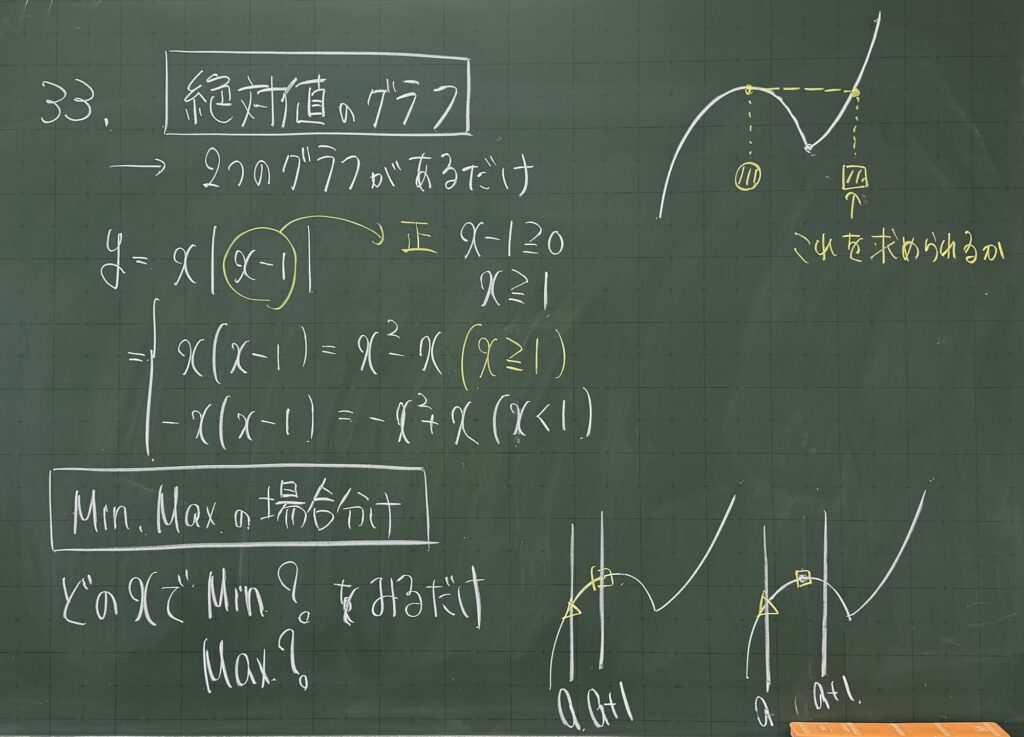 33. 絶対値のグラフ
→ 2つのグラフがあるだけ
y = x|x-1| 正 x-1≧0
x≧1
= x(x-1) = x²-x (x≧1)
-x(x-1) = -x²+x (x<1)
これを求められるか
Min. Maxの場合分け
どのxで Min? をみるだけ
Max?
a a+1
a a+1